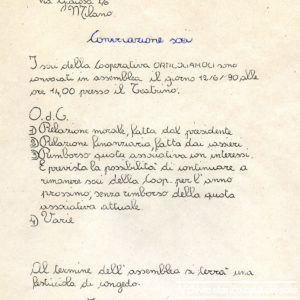 Milano
Convocazione soci
I soci della Cooperativa sono
convocati in assemblea il giorno 12/6/90 alle
ore 14,00 presso il Teatrino.
O.d.C.
1) Relazione morale, fatta dal presidente
2) Relazione finanziaria, fatta dai cassieri.
3) Rimborso quota associativa con interessi.
È prevista la possibilità di continuare a
rimanere soci della Coop. per l'anno
prossimo, senza rimborso della quota
associativa attuale.
4) Varie
Al termine dell'assemblea si terrà una
festicciola di congedo.